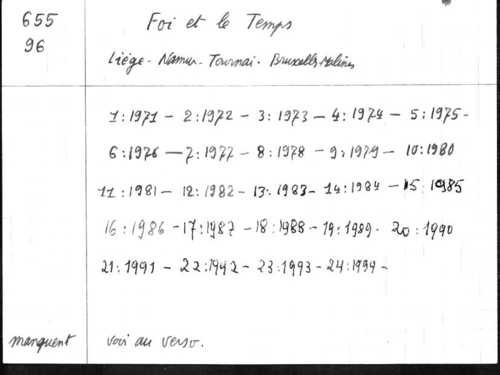 655 Foi et le Temps
96
Liège - Namur - Tournai - Bruxelles Malines
1:1971 - 2:1972 - 3:1973 - 4:1974 - 5:1975 -
6:1976 - 7:1977 - 8:1978 - 9:1979 - 10:1980
11:1981 - 12:1982 - 13:1983 - 14:1984 - 15:1985
16:1986 - 17:1987 - 18:1988 - 19:1989 - 20:1990
21:1991 - 22:1992 - 23:1993 - 24:1994 -
manquent voir au verso.